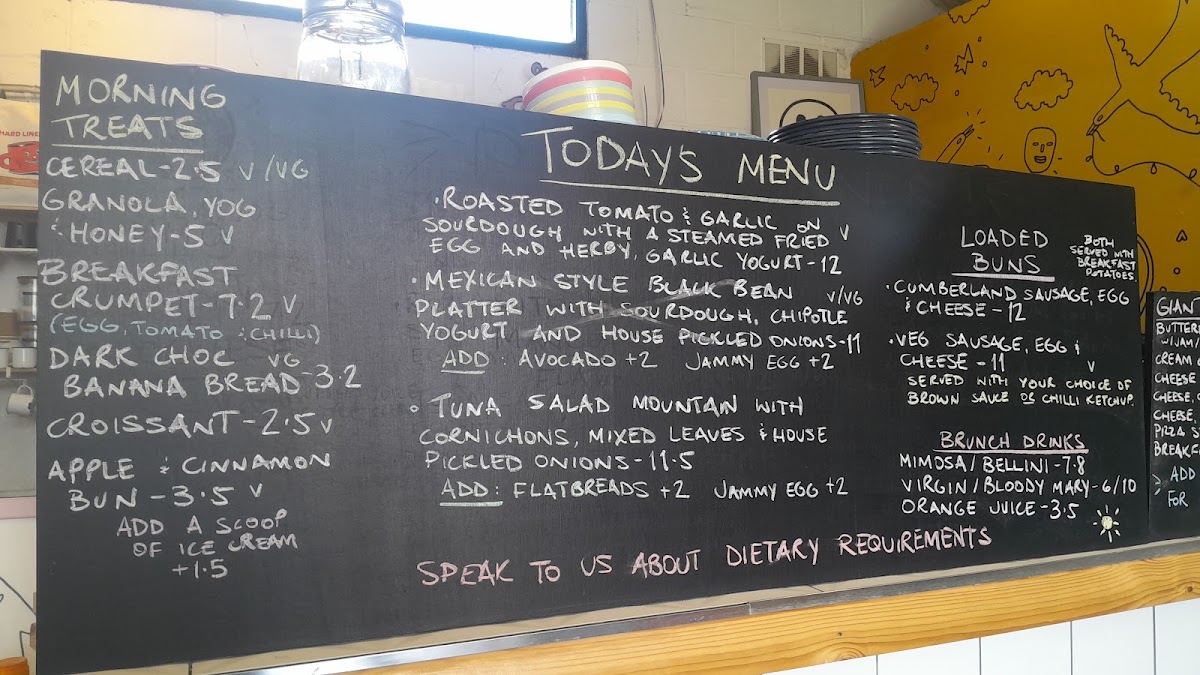 MORNING
TREATS
CEREAL-2.5 V/VG
GRANOLA, YOG
& HONEY-5 V
BREAKFAST
CRUMPET-7.2 V
(EGG, TOMATO & CHILLI)
DARK CHOC VG
BANANA BREAD-3.2
CROISSANT-2.5 V
APPLE & CINNAMON
BUN-3.5 V
ADD A SCOOP
OF ICE CREAM
+1.5
TODAY'S MENU
• ROASTED TOMATO & GARLIC ON
SOURDOUGH WITH A STEAMED FRIED V
EGG AND HERBY, GARLIC YOGURT-12
• MEXICAN STYLE BLACK BEAN V/VG
PLATTER WITH SOURDOUGH, CHIPOTLE
YOGURT AND HOUSE PICKLED ONIONS-11
ADD: AVOCADO +2 JAMMY EGG +2
• TUNA SALAD MOUNTAIN WITH
CORNICHONS, MIXED LEAVES & HOUSE
PICKLED ONIONS-11.5
ADD: FLATBREADS +2 JAMMY EGG +2
SPEAK TO US ABOUT DIETARY REQUIREMENTS
LOADED
BUNS
BOTH
SERVED WITH
BREAKFAST
POTATOES
• CUMBERLAND SAUSAGE, EGG
& CHEESE-12
• VEG SAUSAGE, EGG &
CHEESE-11 V
SERVED WITH YOUR CHOICE OF
BROWN SAUCE OR CHILLI KETCHUP.
BRUNCH DRINKS
MIMOSA/BELLINI-7.8
VIRGIN/BLOODY MARY-6/10
ORANGE JUICE-3.5
GIAN
BUTTER
W/JAM/
CREAM
CHEESE
CHEESE,
CHEESE,
PIZZA S
BREAKF
ADD
FOR
HARD LINE